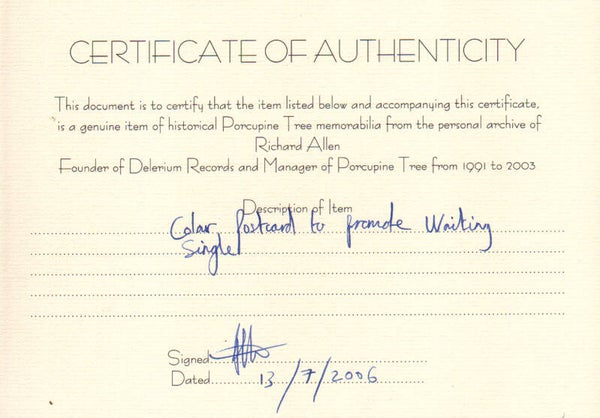 CERTIFICATE OF AUTHENTICITY
This document is to certify that the item listed below and accompanying this certificate,
is a genuine item of historical Porcupine Tree memorabilia from the personal archive of
Richard Allen
Founder of Delerium Records and Manager of Porcupine Tree from 1991 to 2003
Description of Item
Colour Postcard to promote Waiting
Single
Signed
Dated 13/7/2006